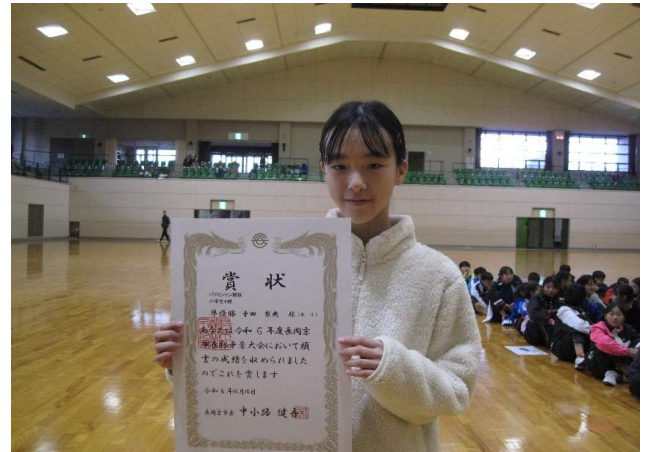 賞状
バドミントン競技
小学生の部
準優勝
あなたは令和6年度長岡京
市長杯争奪大会において頭
書の成績を収められました
のでこれを賞します
令和6年
長岡京市長 中小路 健吾